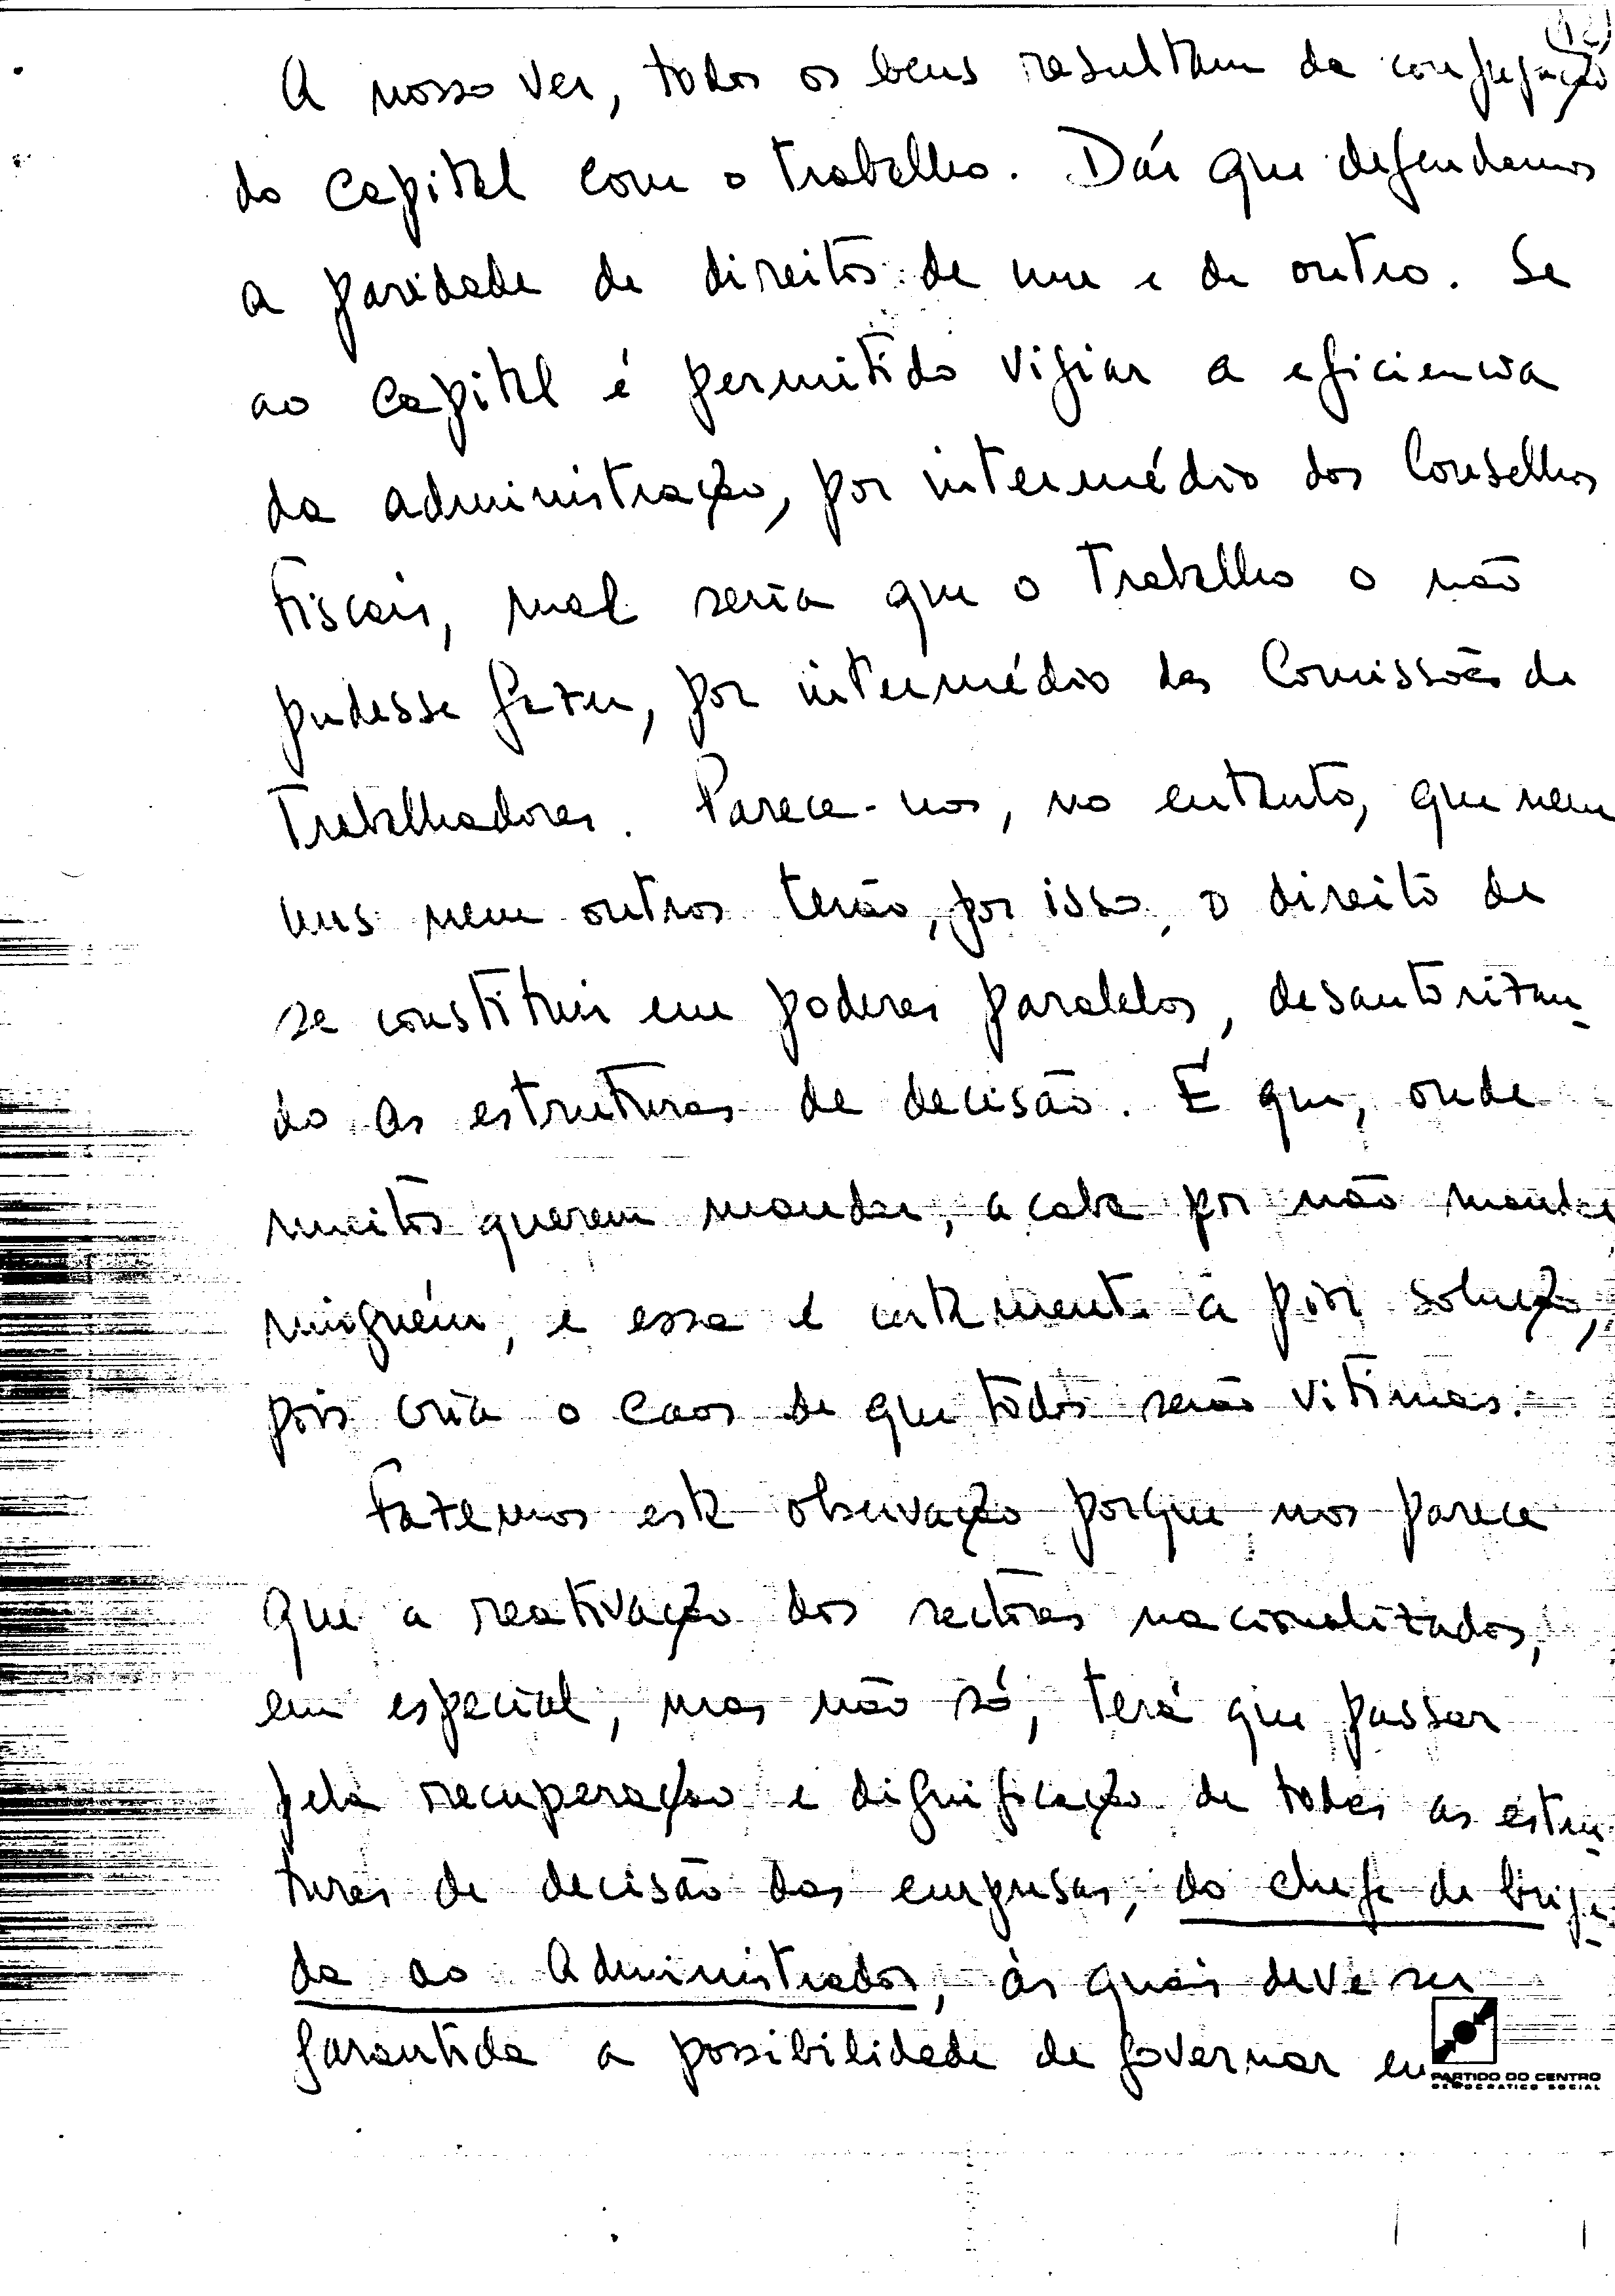 (12)
A nosso ver, todos os bens resultam da conjugação
do capital com o trabalho. Daí que defendamos
a paridade de direitos de um e de outro. Se
ao capital é permitido vigiar a eficiencia
da administração, por intermédio dos Conselhos
Fiscais, mal seria que o Trabalho o não
pudesse fazer, por intermédio das Comissões de
Trabalhadores. Parece-nos, no entanto, que nem
uns nem outros terão, por isso, o direito de
se constituir em poderes paralelos, desautorizan-
do as estruturas de decisão. É que, onde
muitos querem mandar, acaba por não mandar
ninguém, e essa é certamente a pior solução,
pois cria o caos de que todos serão vitimas.
Fazemos esta observação porque nos parece
que a reativação dos sectores nacionalizados,
em especial, mas não só, terá que passar
pela recuperação e dignificação de todas as estru-
turas de decisão das empresas, do chefe de briga-
da ao Administrador, às quais deve ser
garantida a possibilidade de governar em
PARTIDO DO CENTRO
DEMOCRATICO SOCIAL